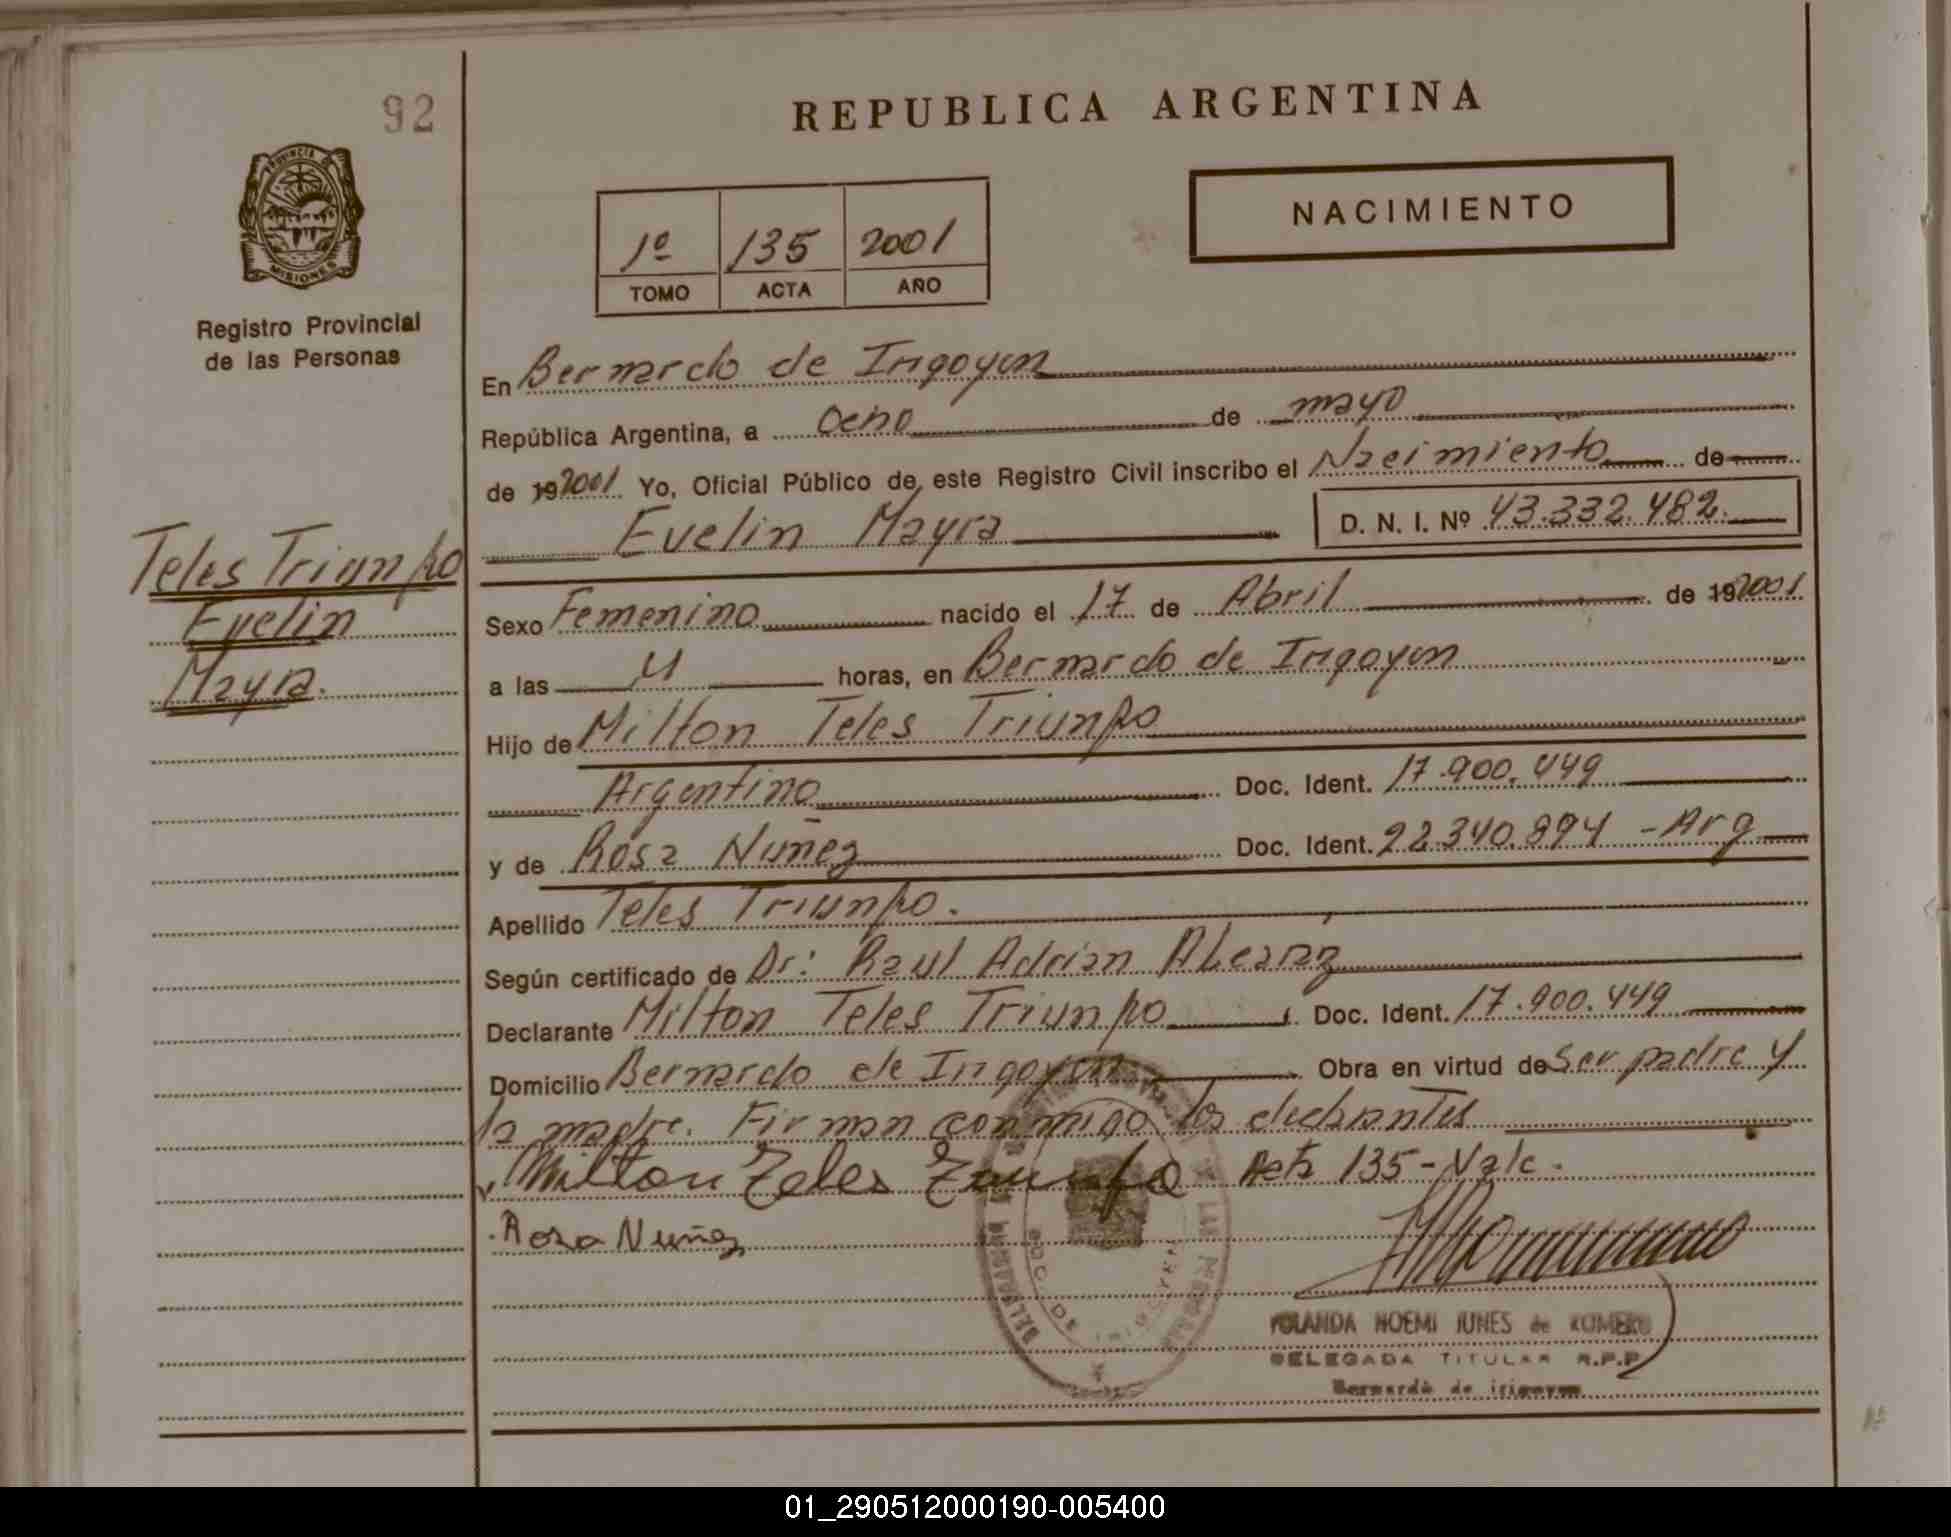 92
REPUBLICA ARGENTINA
PROVINCIA DE
MISIONES
Registro Provincial
de las Personas
1º 135 2001
TOMO ACTA AÑO
NACIMIENTO
En Bernardo de Irigoyen
República Argentina, a ocho de mayo
de 192001 Yo, Oficial Público de este Registro Civil inscribo el Nacimiento de
Evelin Mayra D. N. I. Nº 43.332.482.
Teles Triunfo
Evelin
Mayra.
Sexo Femenino nacido el 17 de Abril de 192001
a las 4 horas, en Bernardo de Irigoyen
Hijo de Milton Teles Triunfo
Argentino Doc. Ident. 17.900.449
y de Rosa Nuñez Doc. Ident. 22.340.894 - Arg
Apellido Teles Triunfo.
Según certificado de Dr: Raul Adrian Alcaraz
Declarante Milton Teles Triunfo Doc. Ident. 17.900.449
Domicilio Bernardo de Irigoyen Obra en virtud de Ser padre y
la madre. Firman conmigo los declarantes
Milton Teles Triunfo Acta 135 - Vale.
Rosa Nuñez
YOLANDA NOEMI JUNES de ROMERO
DELEGADA TITULAR R.P.P
Bernardo de Irigoyen
01_290512000190-005400